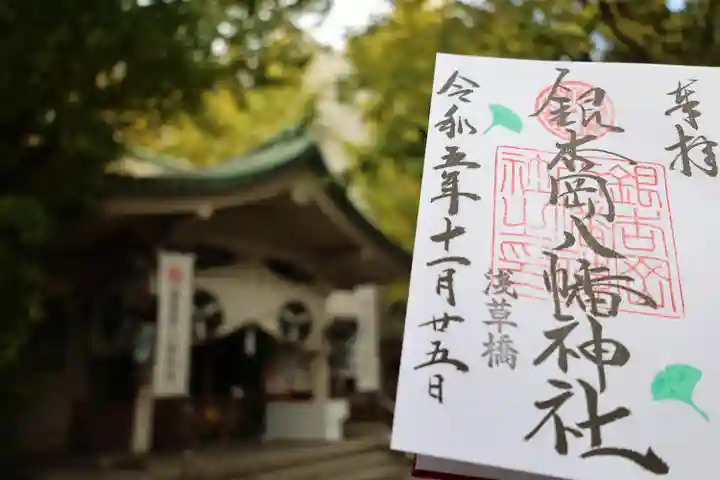 奉拝
銀杏岡八幡神社
浅草橋
令和五年十一月廿五日